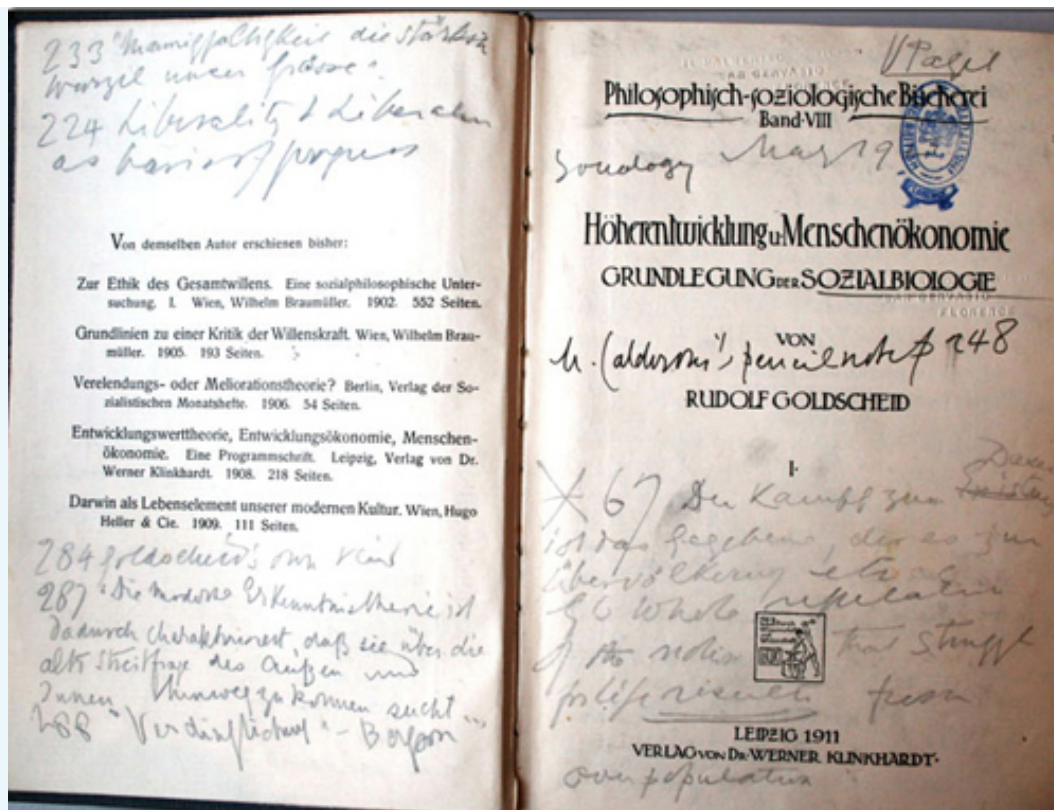 233 "Mannigfaltigkeit die stärkste
Wurzel unser Grösse".
224 Liberality & Liberalism
as basis of progress
Von demselben Autor erschienen bisher:
Zur Ethik des Gesamtwillens. Eine sozialphilosophische Unter-
suchung. I. Wien, Wilhelm Braumüller. 1902. 552 Seiten.
Grundlinien zu einer Kritik der Willenskraft. Wien, Wilhelm Brau-
müller. 1905. 193 Seiten.
Verelendungs- oder Meliorationstheorie? Berlin, Verlag der So-
zialistischen Monatshefte. 1906. 54 Seiten.
Entwicklungswerttheorie, Entwicklungsökonomie, Menschen-
ökonomie. Eine Programmschrift. Leipzig, Verlag von Dr.
Werner Klinkhardt. 1908. 218 Seiten.
Darwin als Lebenselement unserer modernen Kultur. Wien, Hugo
Heller & Cie. 1909. 111 Seiten.
284 Goldscheid's own
287 "Die moderne Erkenntnistheorie ist
dadurch charakterisiert, daß sie über die
alte Streitfrage des Außen und
Innen hinweg zu kommen sucht ...
288 - Bergson
Philosophisch-soziologische Bücherei
Band VIII
Sociology May 19
Höherentwicklung u. Menschenökonomie
GRUNDLEGUNG DER SOZIALBIOLOGIE
FLORENCE
VON
pencil note p 248
RUDOLF GOLDSCHEID
I.
67 Der Kampf zum
ist das Gegebene, der es zur
Übervölkerung etc
whole refutation
of the notion that struggle
from
LEIPZIG 1911
VERLAG VON DR. WERNER KLINKHARDT.
over population